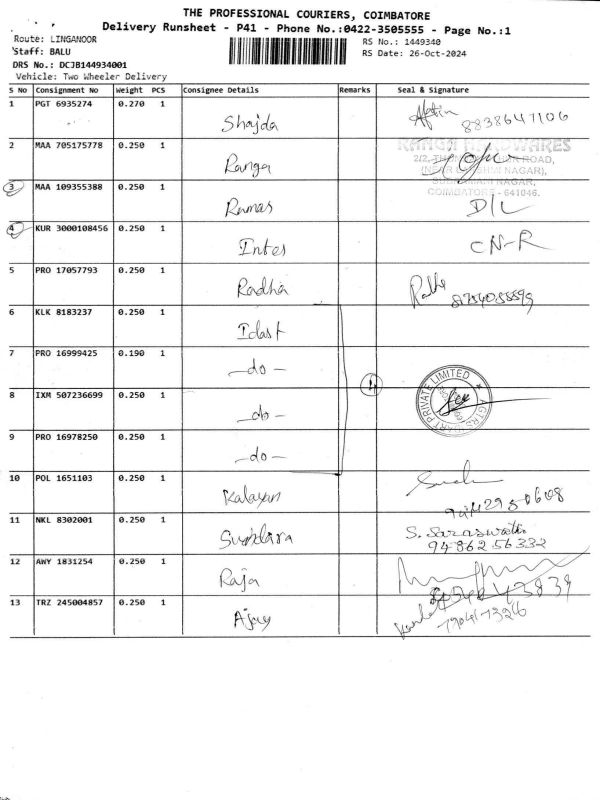 THE PROFESSIONAL COURIERS, COIMBATORE
Delivery Runsheet - P41 - Phone No.:0422-3505555 - Page No.:1
Route: LINGANOOR
RS No.: 1449340
Staff: BALU
RS Date: 26-Oct-2024
DRS No.: DCJB144934001
Vehicle: Two Wheeler Delivery
S No Consignment No Weight PCS Consignee Details Remarks Seal & Signature
1 PGT 6935274 0.270 1 Shajda 8838647106
2 MAA 705175778 0.250 1 Ranga
RANGA HARDWARES
2/2, ROAD,
NAGAR),
NAGAR,
COIMBATORE - 641046.
3 MAA 109355388 0.250 1 Ramas D/L
4 KUR 3000108456 0.250 1 Intes CN-R
5 PRO 17057793 0.250 1 Radha
6 KLK 8183237 0.250 1 Idast
7 PRO 16999425 0.190 1 -do-
4
8 IXM 507236699 0.250 1 -do-
PRIVATE LIMITED
9 PRO 16978250 0.250 1 -do-
10 POL 1651103 0.250 1 Kalayan
11 NKL 8302001 0.250 1 Sundara S. Saraswathi
9486256332
12 AWY 1831254 0.250 1 Raja
13 TRZ 245004857 0.250 1 Ajay